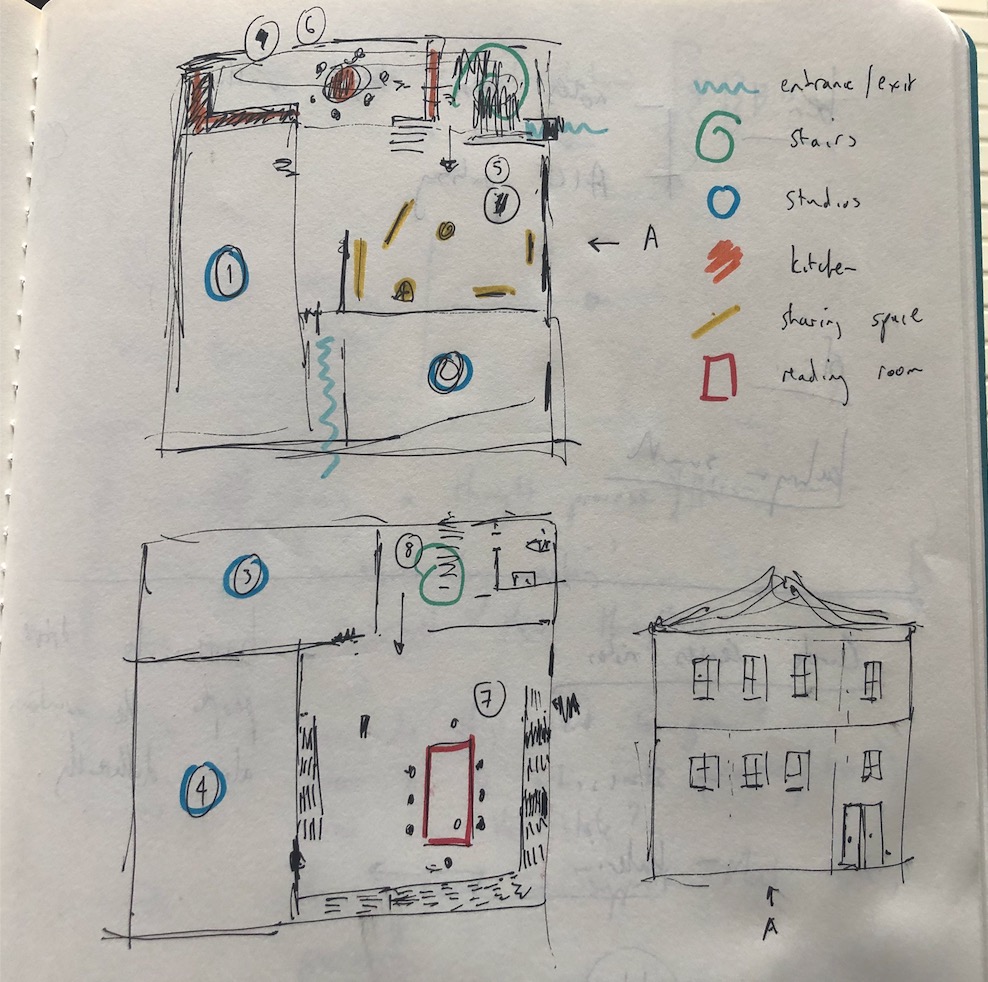 9 6
entrance / exit
stairs
studios
kitchen
sharing space
reading room
5
← A
1
3
8
7
4
↑
A